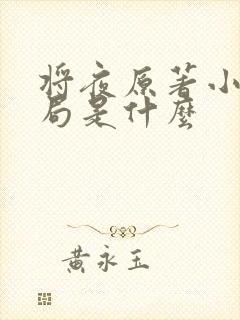 将夜原著小
局是什麼
黄永玉